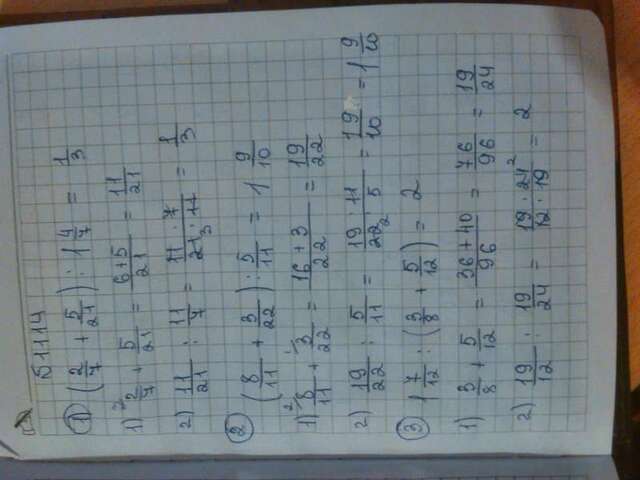 Б 1114
① (2/7 + 5/21) : 1 4/7 = 1/3
1) 2/7 + 5/21 = 6+5/21 = 11/21
2) 11/21 : 11/7 = 11 · 7/21 · 11 = 1/3
② (8/11 + 3/22) : 5/11 = 1 9/10
1) 8/11 + 3/22 = 16 + 3/22 = 19/22
2) 19/22 : 5/11 = 19 · 11/22 · 5 = 19/10 = 1 9/10
③ 1 7/12 : (3/8 + 5/12) = 2
1) 3/8 + 5/12 = 36 + 40/96 = 76/96 = 19/24
2) 19/12 : 19/24 = 19 · 24/12 · 19 = 2